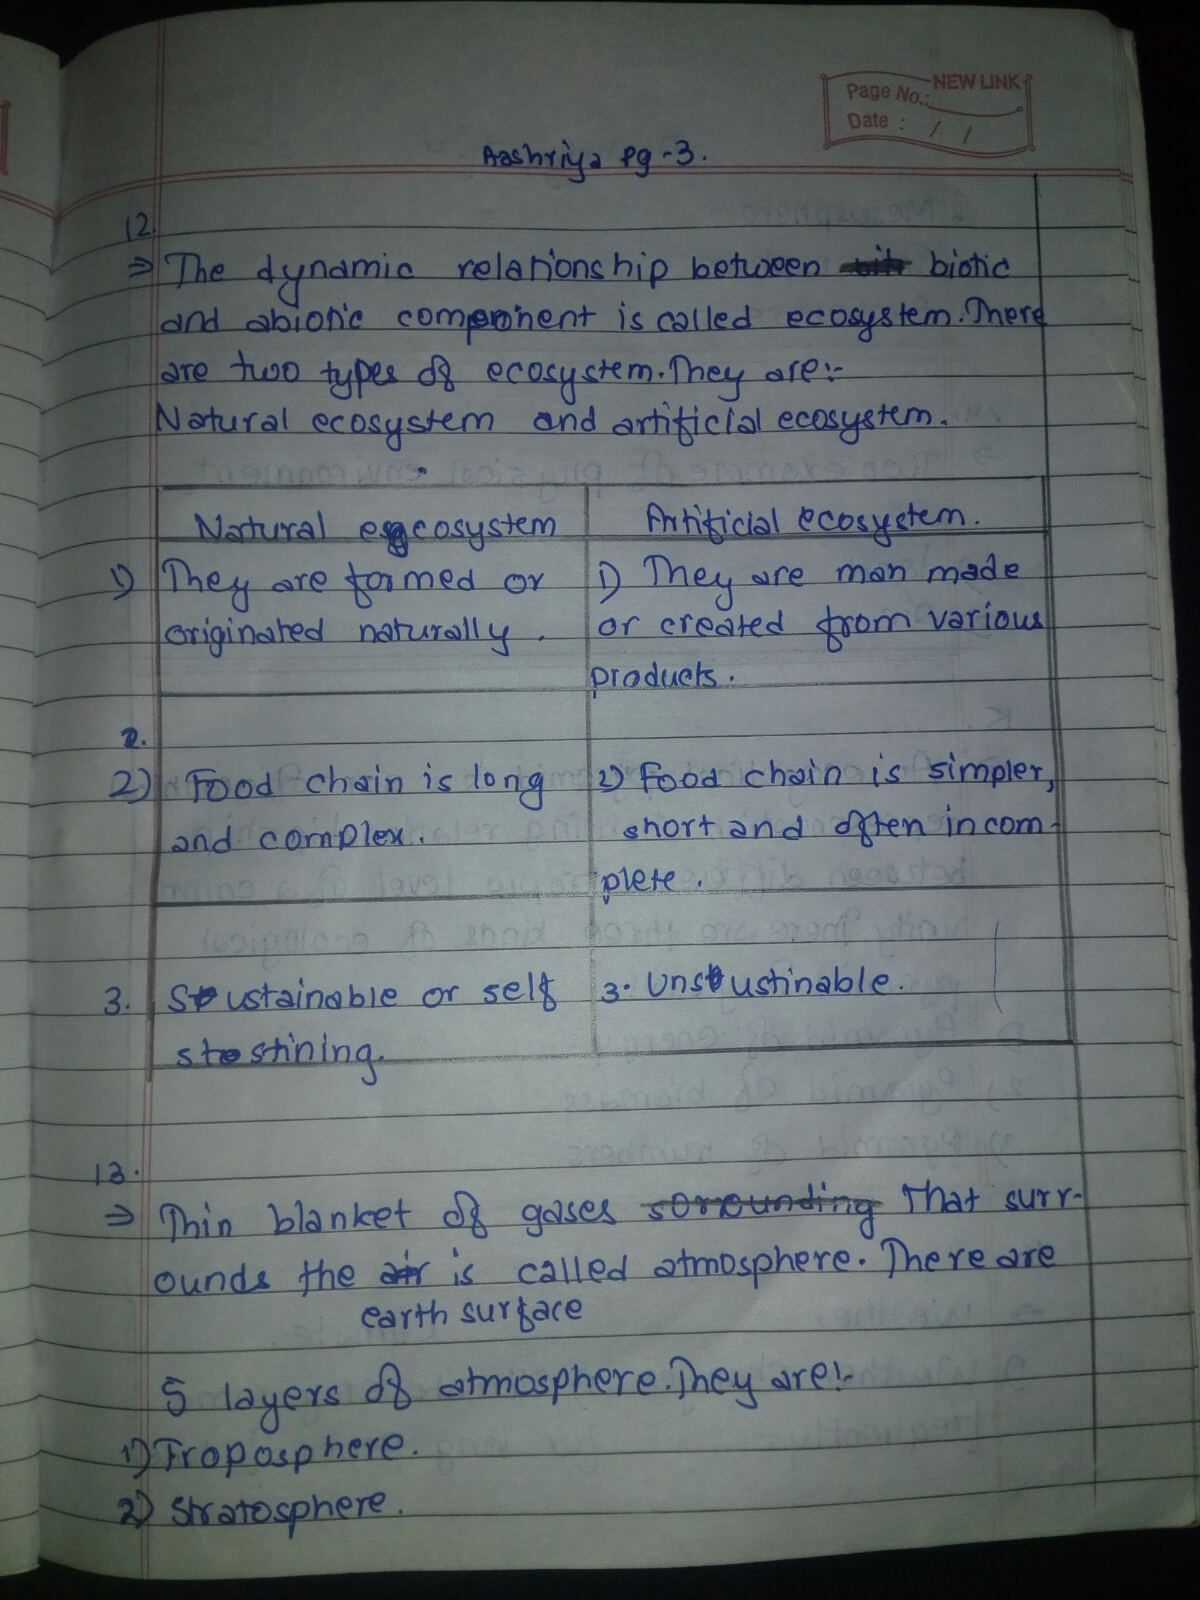 NEW LINK
Page No.:
Date : / /
Aashriya pg-3.
12.
⇒ The dynamic relationship between biotic
and abiotic component is called ecosystem. There
are two types of ecosystem. They are:-
Natural ecosystem and artificial ecosystem.
Natural ecosystem
Artificial ecosystem.
1) They are formed or
originated naturally.
1) They are man made
or created from various
products.
2.
2) Food chain is long
and complex.
2) Food chain is simpler,
short and often incom-
plete.
3. Sustainable or self
stostining.
3. Unsustinable.
13.
⇒ Thin blanket of gases sorrounding That surr-
ounds the air is called atmosphere. There are
earth surface
5 layers of atmosphere. They are:-
1) Troposphere.
2) Stratosphere.